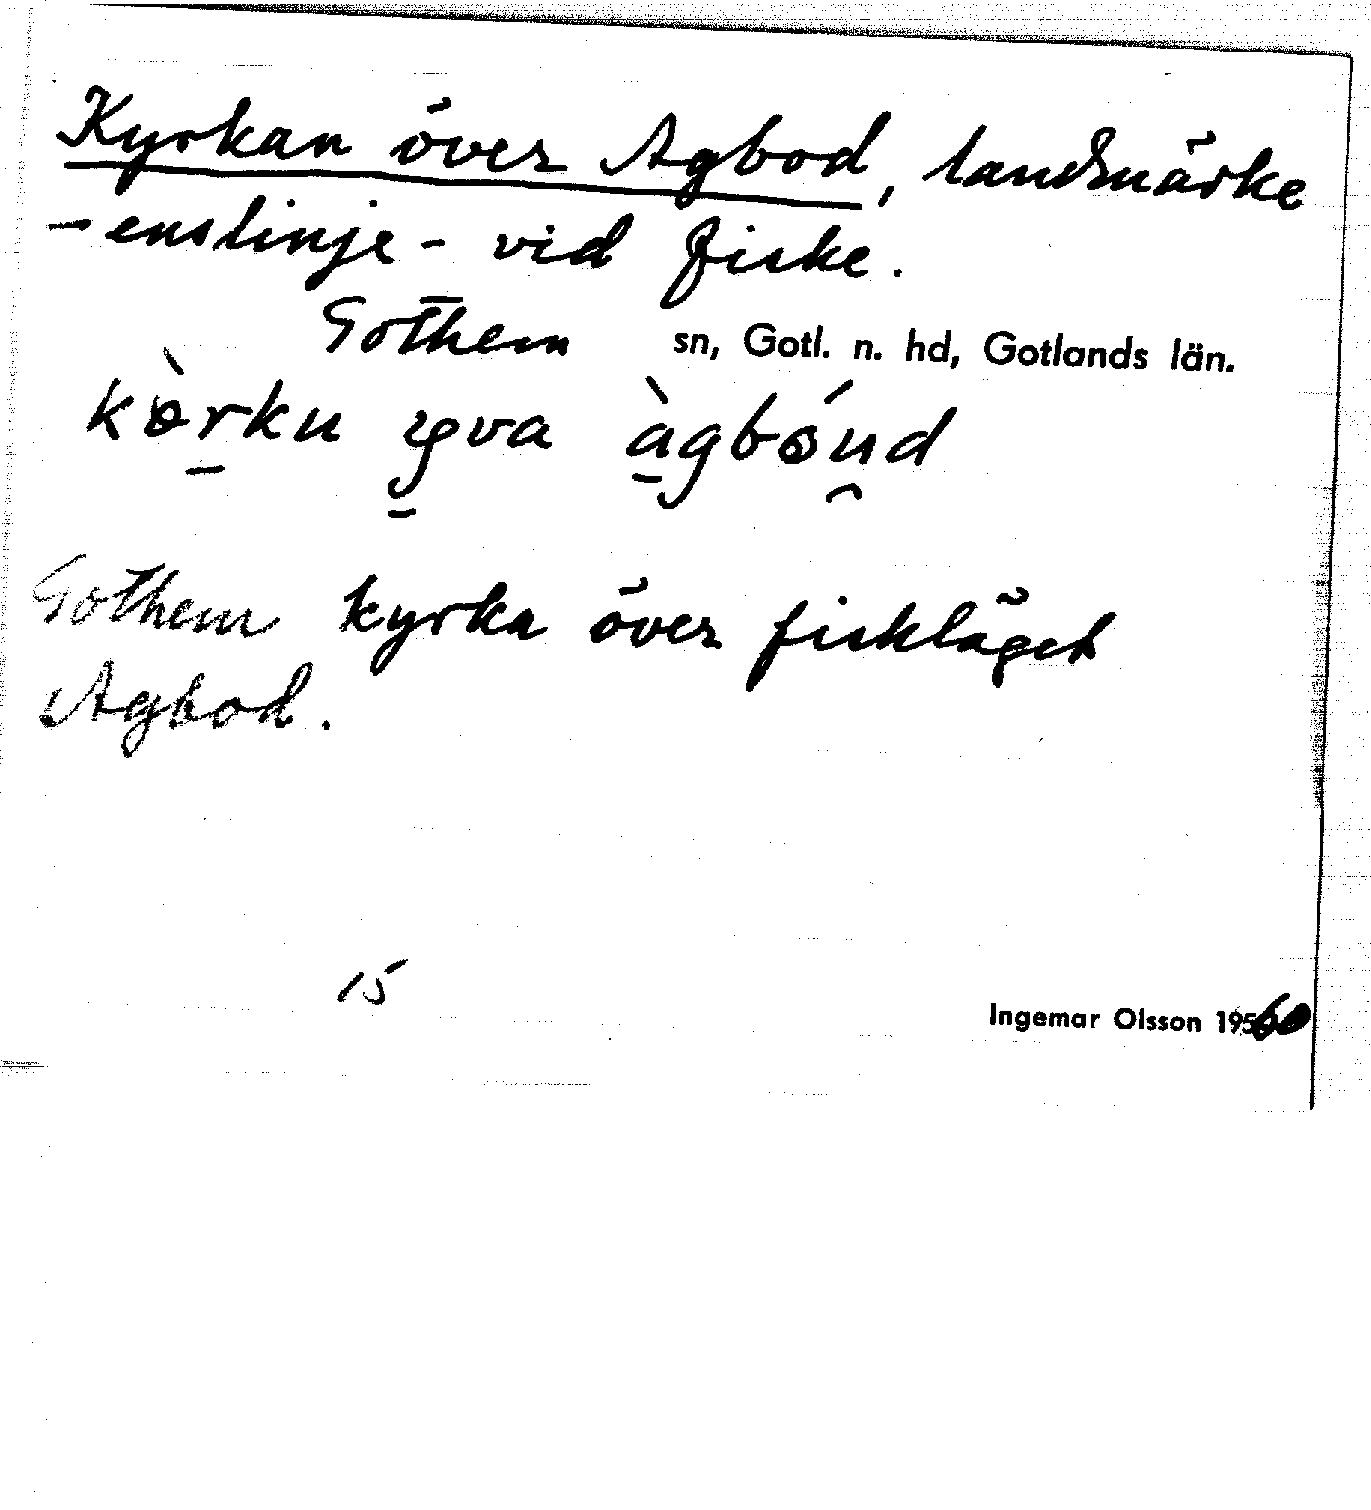 Kyrkan över Agbod, landmärke
- enslinje - vid fiske.
Gothem sn, Gotl. n. hd, Gotlands län.
Gothem kyrka över fiskläget
Agbod.
15
Ingemar Olsson 1960